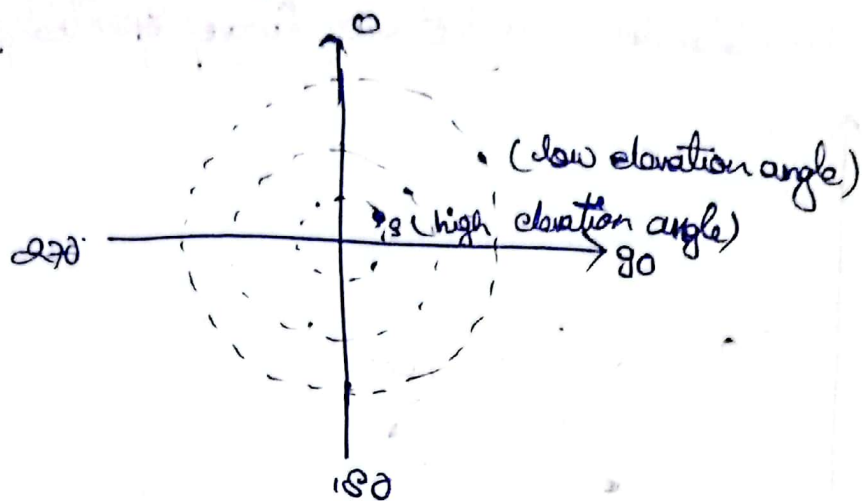 0
(low elevation angle)
s (high elevation angle)
270
90
180